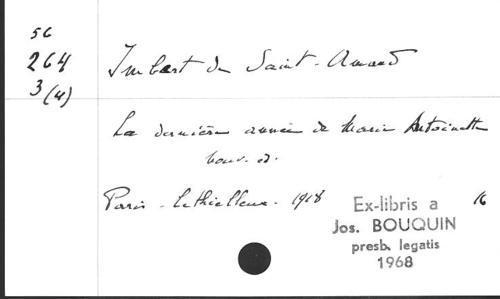 56
264
3 (4)
Imbert de Saint-Amand
La dernière année de Marie Antoinette
nouv. ed.
Paris - Lethielleux - 1918
16
Ex-libris a
Jos. BOUQUIN
presb. legatis
1968